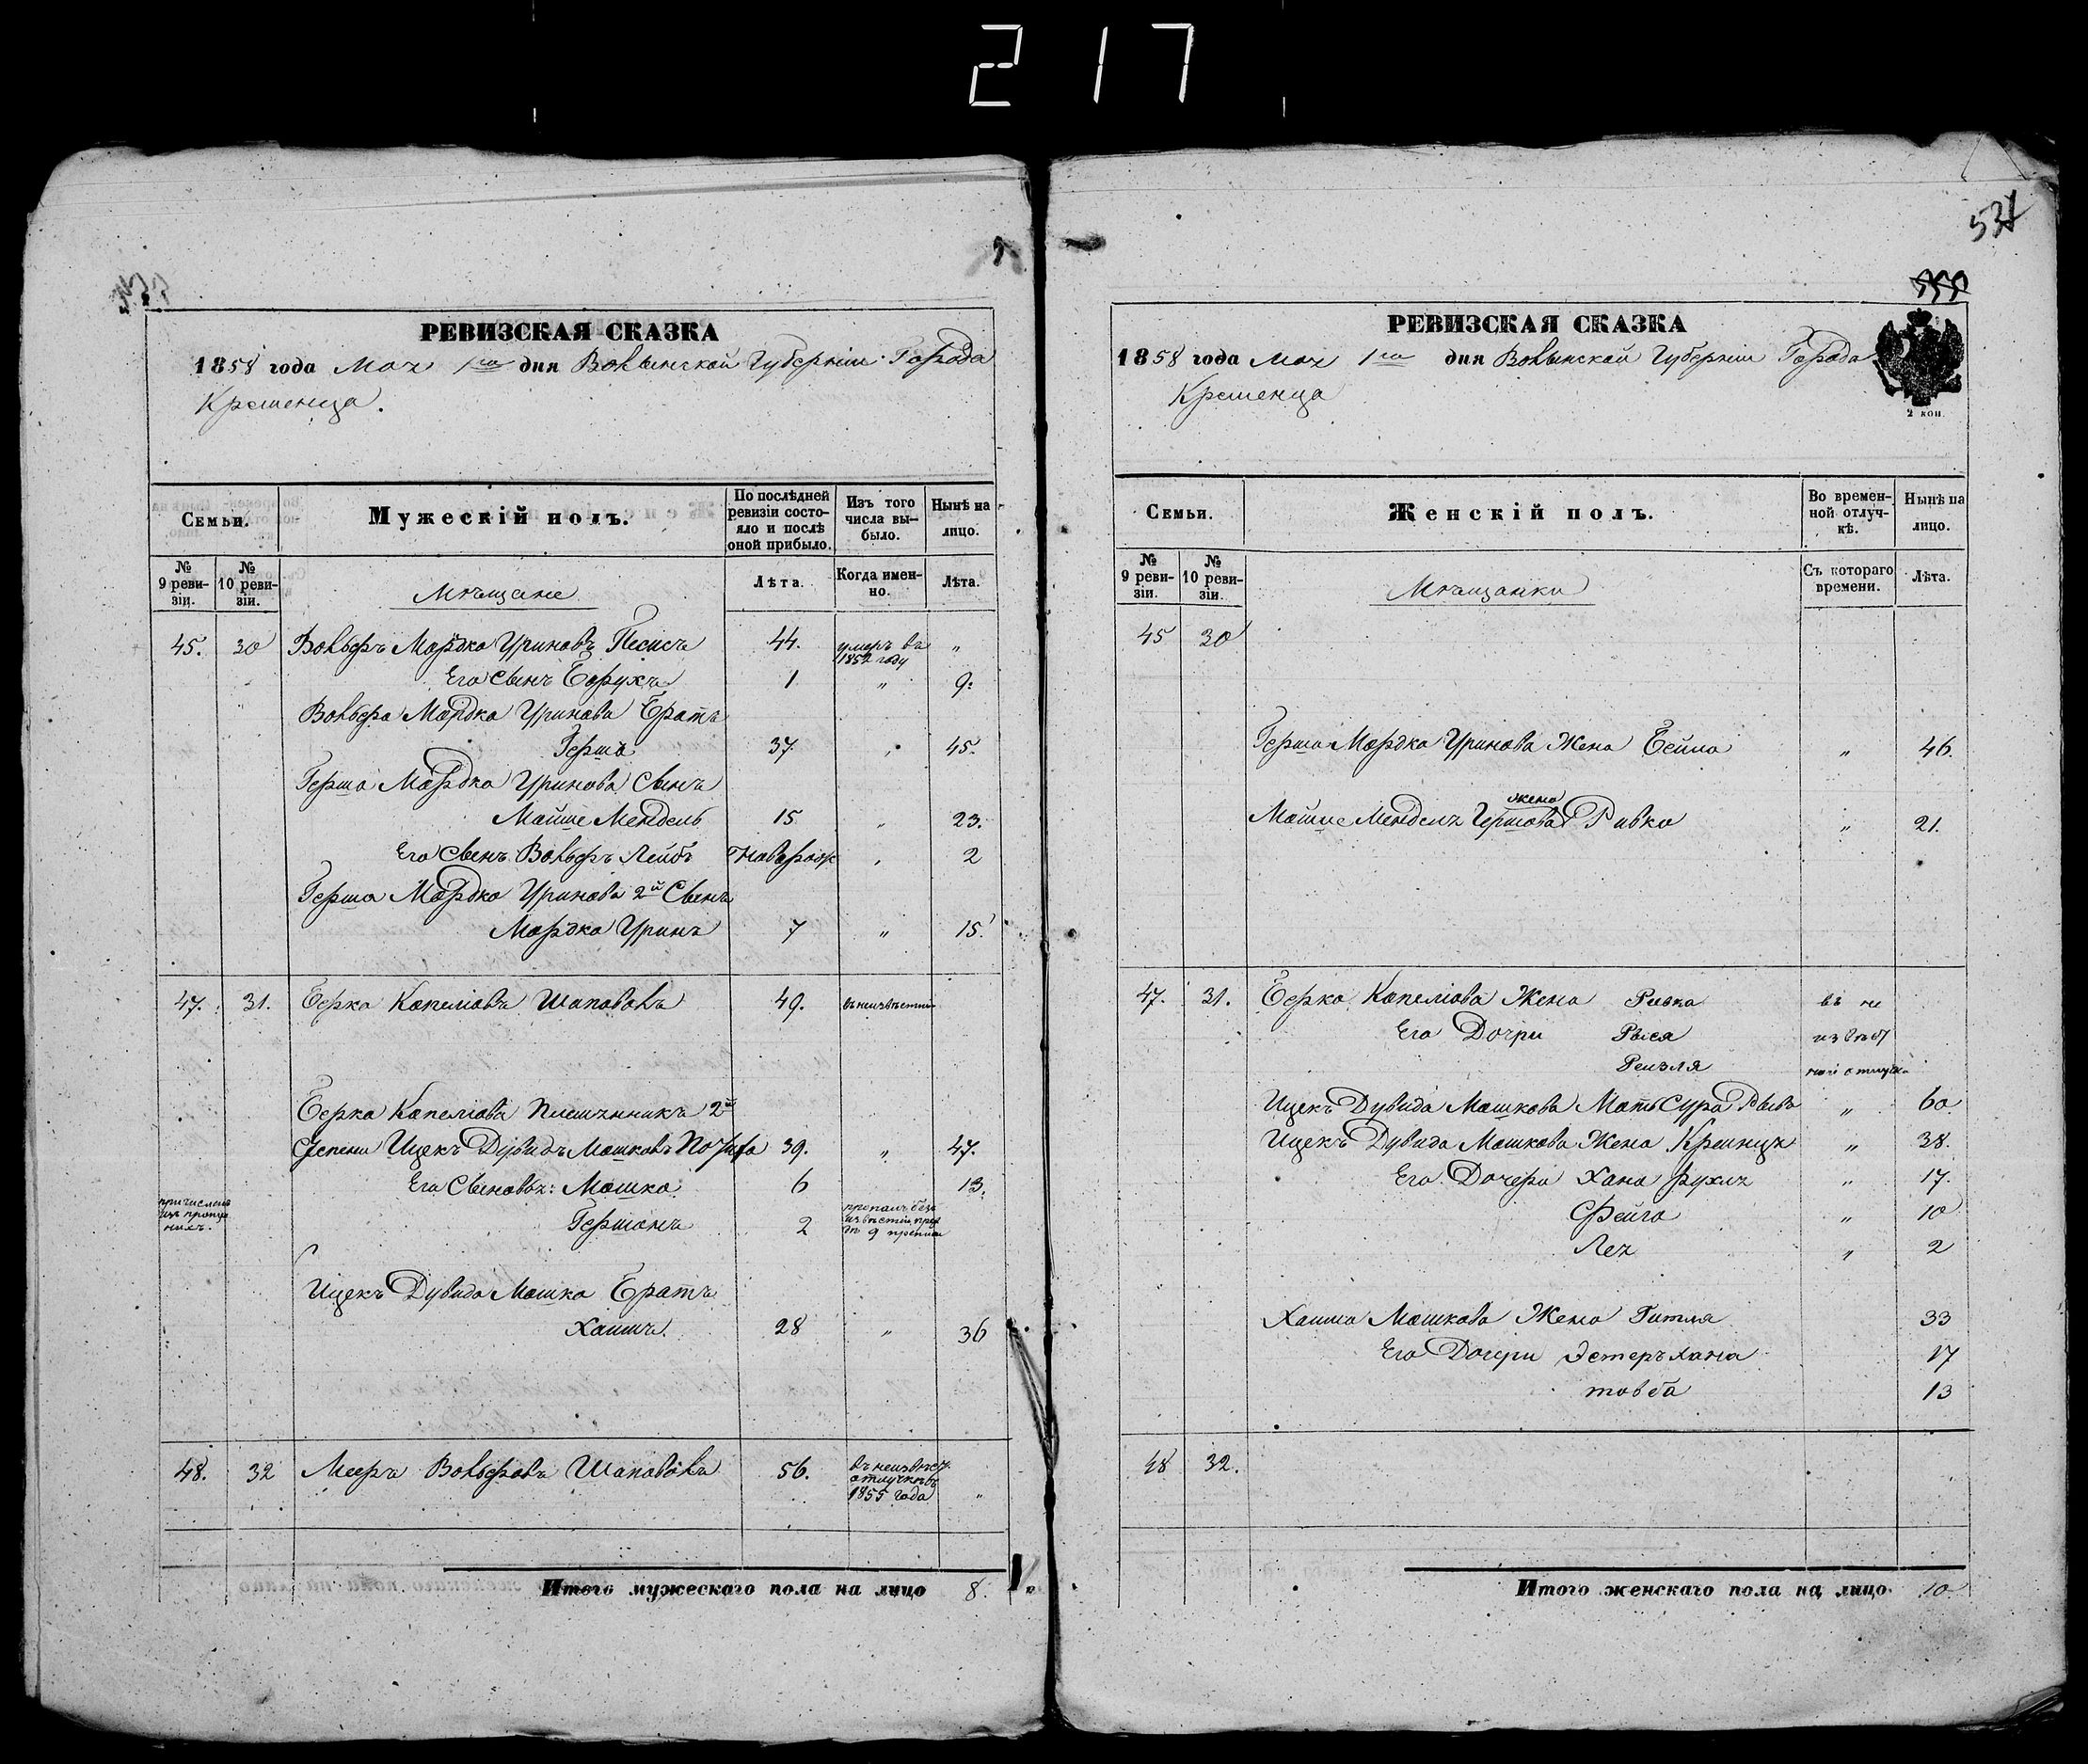 217
537
РЕВИЗСКАЯ СКАЗКА
1858 года Мая 1го дня Волынской Губерніи Города
Кременца.
Семьи.
Мужескій полъ.
По послѣдней ревизіи состояло и послѣ оной прибыло.
Изъ того числа выбыло.
Нынѣ на лицо.
№ 9 ревизіи.
№ 10 ревизіи.
Мѣщане
Лѣта.
Когда именно.
Лѣта.
45. 30 Вольфъ Мордко Уриновъ Песисъ 44. умеръ въ 1852 году "
Его Сынъ Борухъ 1 " 9.
Вольфа Мордко Уринова Братъ
Герша 37. " 45.
Герша Мордко Уринова Сынъ
Мойше Мендель 15 " 23.
Его Сынъ Вольфъ Лейбъ Новорож " 2
Герша Мордко Уринова 2й Сынъ
Мордко Уринъ 7 " 15.
47. 31. Берко Капеліовъ Шаповолъ 49. въ неизвѣстн
Берка Капеліова Племянникъ 2й
Степени Ицекъ Дувидъ Мошковъ 39. " 47.
Его Сыновья: Мошко 6 13.
причисленъ изъ
Гершонъ 2 пропалъ безъ извѣстій
Ицекъ Дувида Мошко Братъ
Хаимъ. 28 " 36
48. 32 Мееръ Вольфовъ Шаповолъ 56. въ неизвѣст отлучкѣ съ 1855 года "
Итого мужескаго пола на лицо 8.
РЕВИЗСКАЯ СКАЗКА
1858 года Мая 1го дня Волынской Губерніи Города
Кременца
2 коп.
Семьи.
Женскій полъ.
Во временной отлучкѣ.
Нынѣ на лицо.
№ 9 ревизіи.
№ 10 ревизіи.
Мѣщанки
Съ котораго времени.
Лѣта.
45 30
Герша Мордко Уринова Жена Бейла " 46.
жена
Мойше Мендель Гершова Ривко " 21.
47. 31. Берко Капеліова Жена Ривка въ не
Его Дочри Рыся извѣст
Рейзля ной отлучк
Ицекъ Дувида Мошкова Мать Сура Рыва " 60
Ицекъ Дувида Мошкова Жена Креинця " 38.
Его Дочери Хана Рухля " 17.
Фейга " 10
Лея " 2
Хаима Мошкова Жена Гитля 33
Его Дочери Эстеръ Хана 17
товба 13
48 32.
Итого женскаго пола на лицо. 10